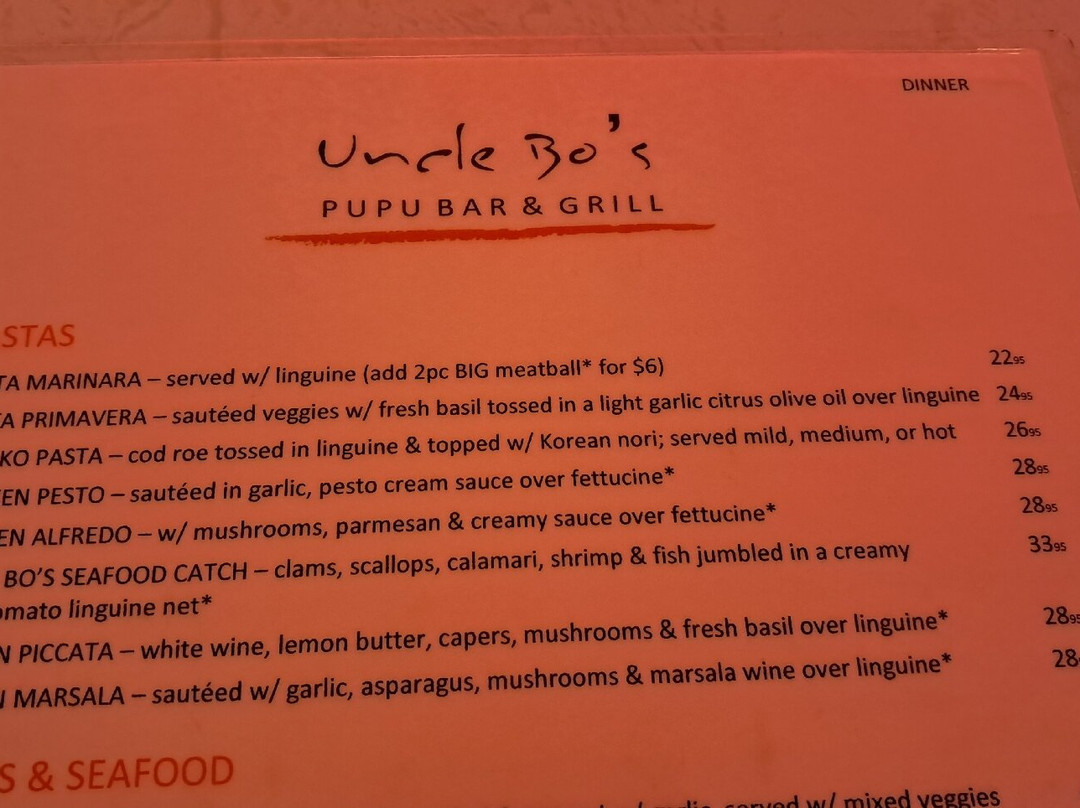 DINNER
Uncle Bo's
PUPU BAR & GRILL
STAS
TA MARINARA – served w/ linguine (add 2pc BIG meatball* for $6) 2295
A PRIMAVERA – sautéed veggies w/ fresh basil tossed in a light garlic citrus olive oil over linguine 2495
KO PASTA – cod roe tossed in linguine & topped w/ Korean nori; served mild, medium, or hot 2695
EN PESTO – sautéed in garlic, pesto cream sauce over fettucine* 2895
EN ALFREDO – w/ mushrooms, parmesan & creamy sauce over fettucine* 2895
BO'S SEAFOOD CATCH – clams, scallops, calamari, shrimp & fish jumbled in a creamy 3395
omato linguine net*
N PICCATA – white wine, lemon butter, capers, mushrooms & fresh basil over linguine* 2895
MARSALA – sautéed w/ garlic, asparagus, mushrooms & marsala wine over linguine* 28
S & SEAFOOD
garlic, served w/ mixed veggies